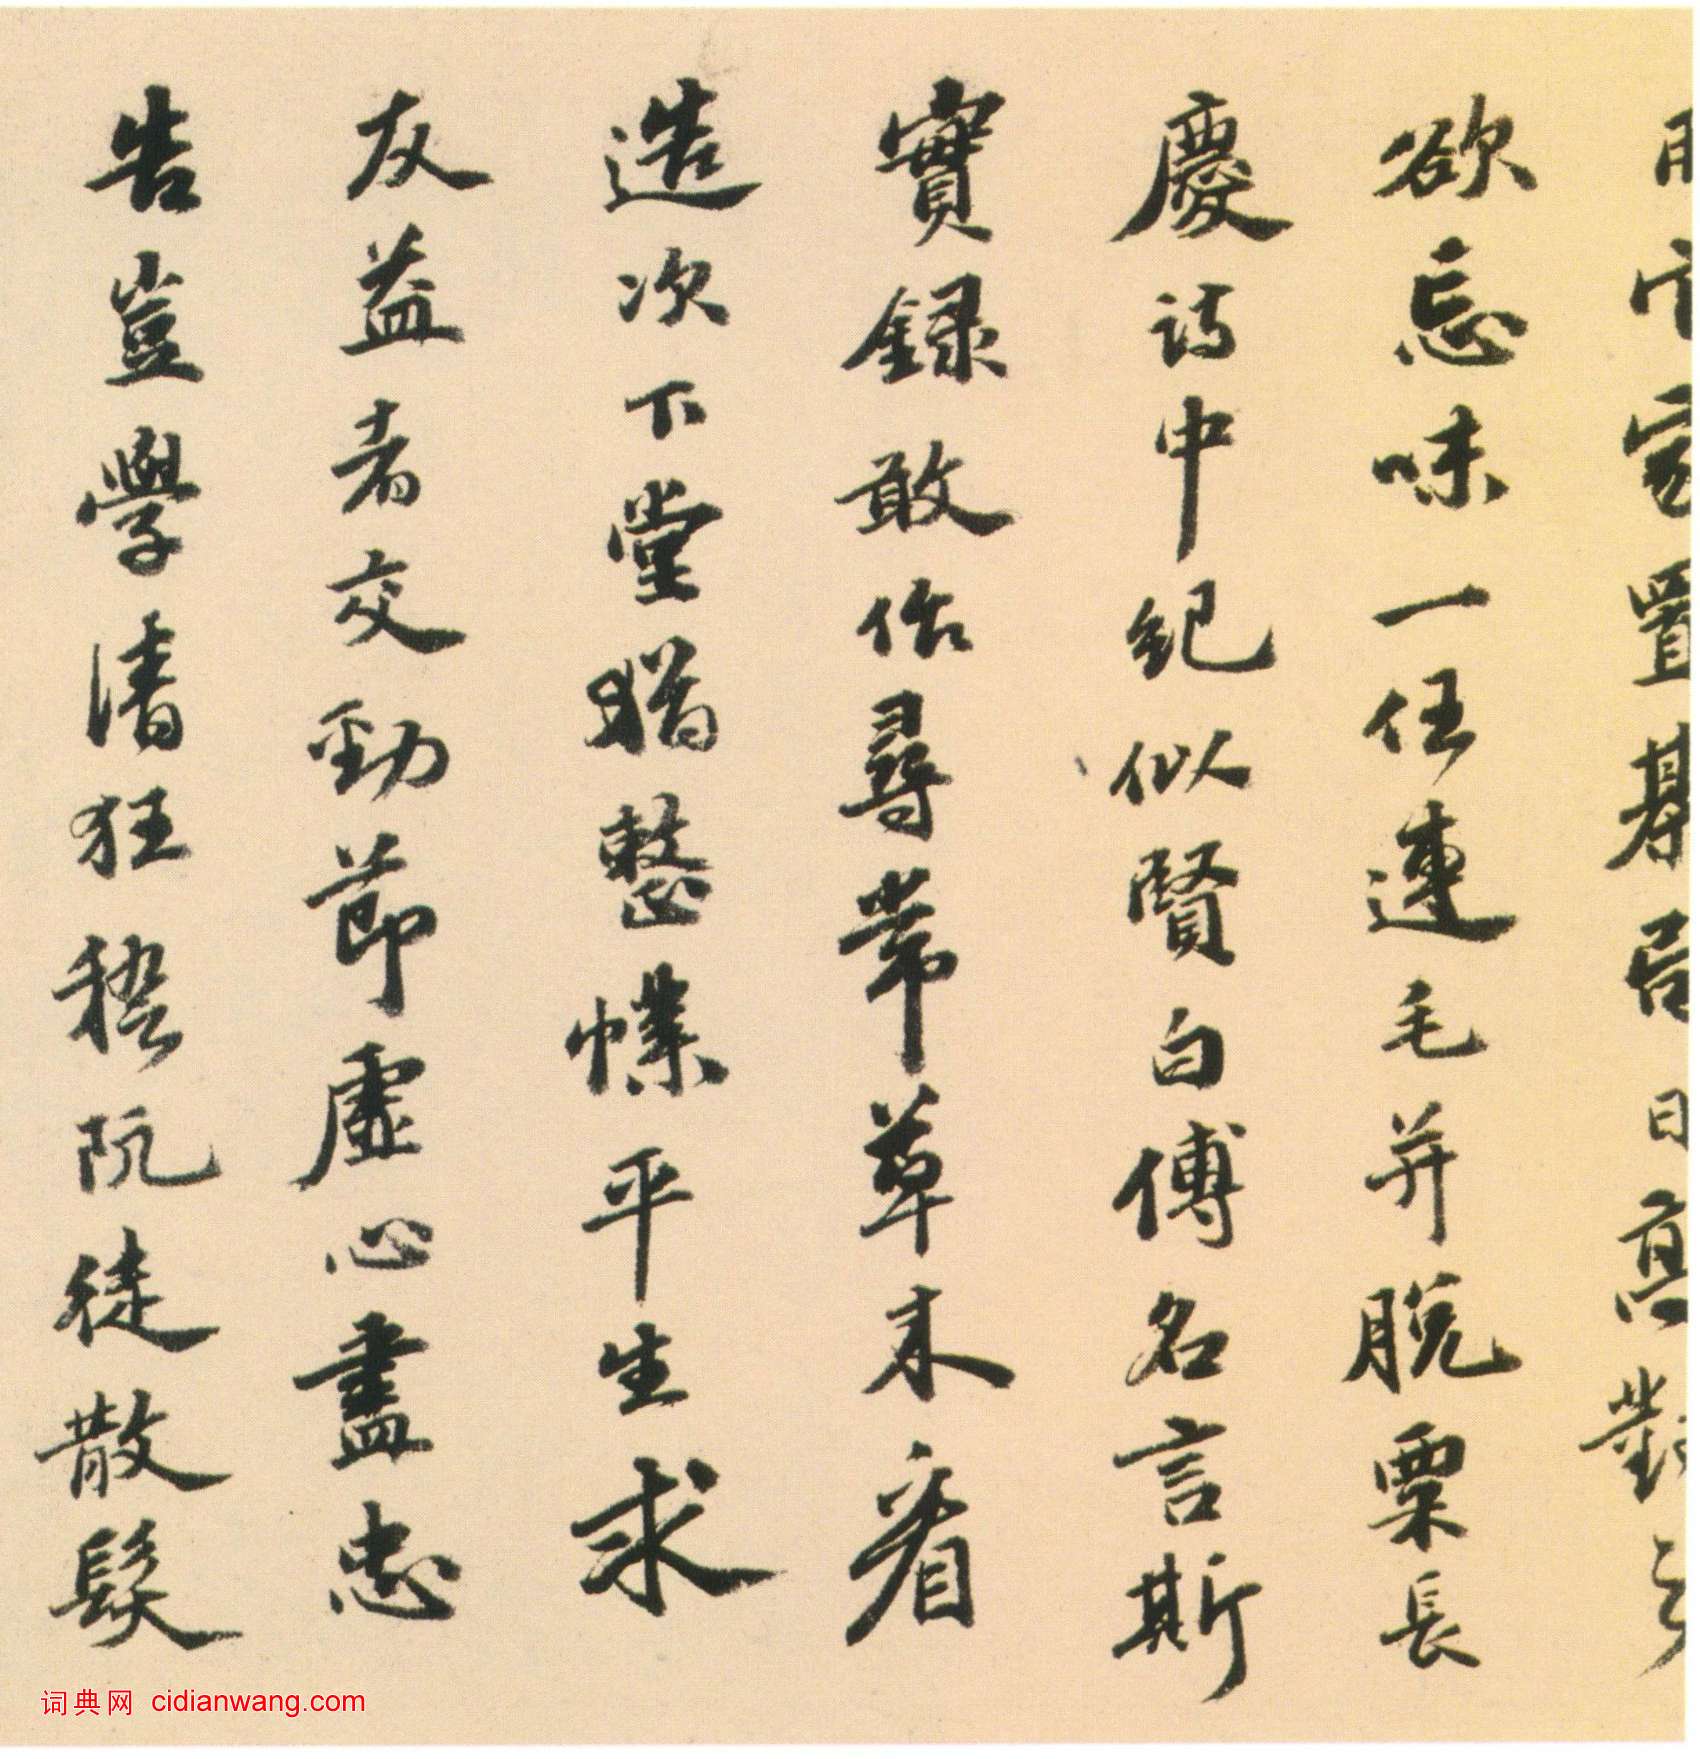 置基居日高對
欲忘味一任連毛并脫粟長
慶詩中紀似賢白傅名言斯
實録敢作尋常草木看
造次下堂猶整幞平生求
友益者交勁節虛心盡忠
告豈學清狂嵇阮徒散髮
词典网 cidianwang.com